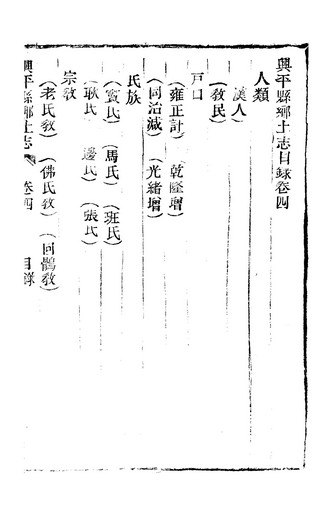 興平縣鄉土志目錄卷四
人類
漢人
（教民）
戸口
（雍正計） （乾隆增）
（同治減） （光緒增）
氏族
（竇氏） （馬氏） （班氏）
（耿氏 邊氏 （張氏）
宗教
（老氏教） （佛氏教） （回鶻教）
興平縣鄉土志 卷四 目錄